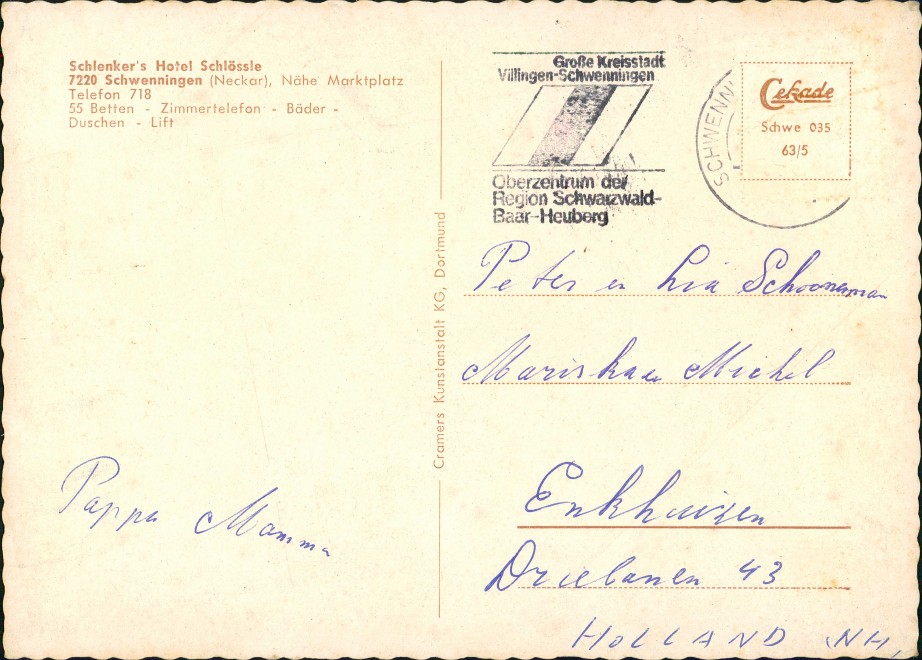 Schlenker's Hotel Schlössle
7220 Schwenningen (Neckar), Nähe Marktplatz
Telefon 718
55 Betten - Zimmertelefon - Bäder -
Duschen - Lift
Pappa Mamma
Cramers Kunstanstalt KG, Dortmund
Große Kreisstadt
Villingen-Schwenningen
Oberzentrum der
Region Schwarzwald-
Baar-Heuberg
SCHWENN
Cekade
Schwe 035
63/5
Peter en Lia Schooneman
Mariska en Michel
Enkhuizen
Driebanen 43
HOLLAND NH,